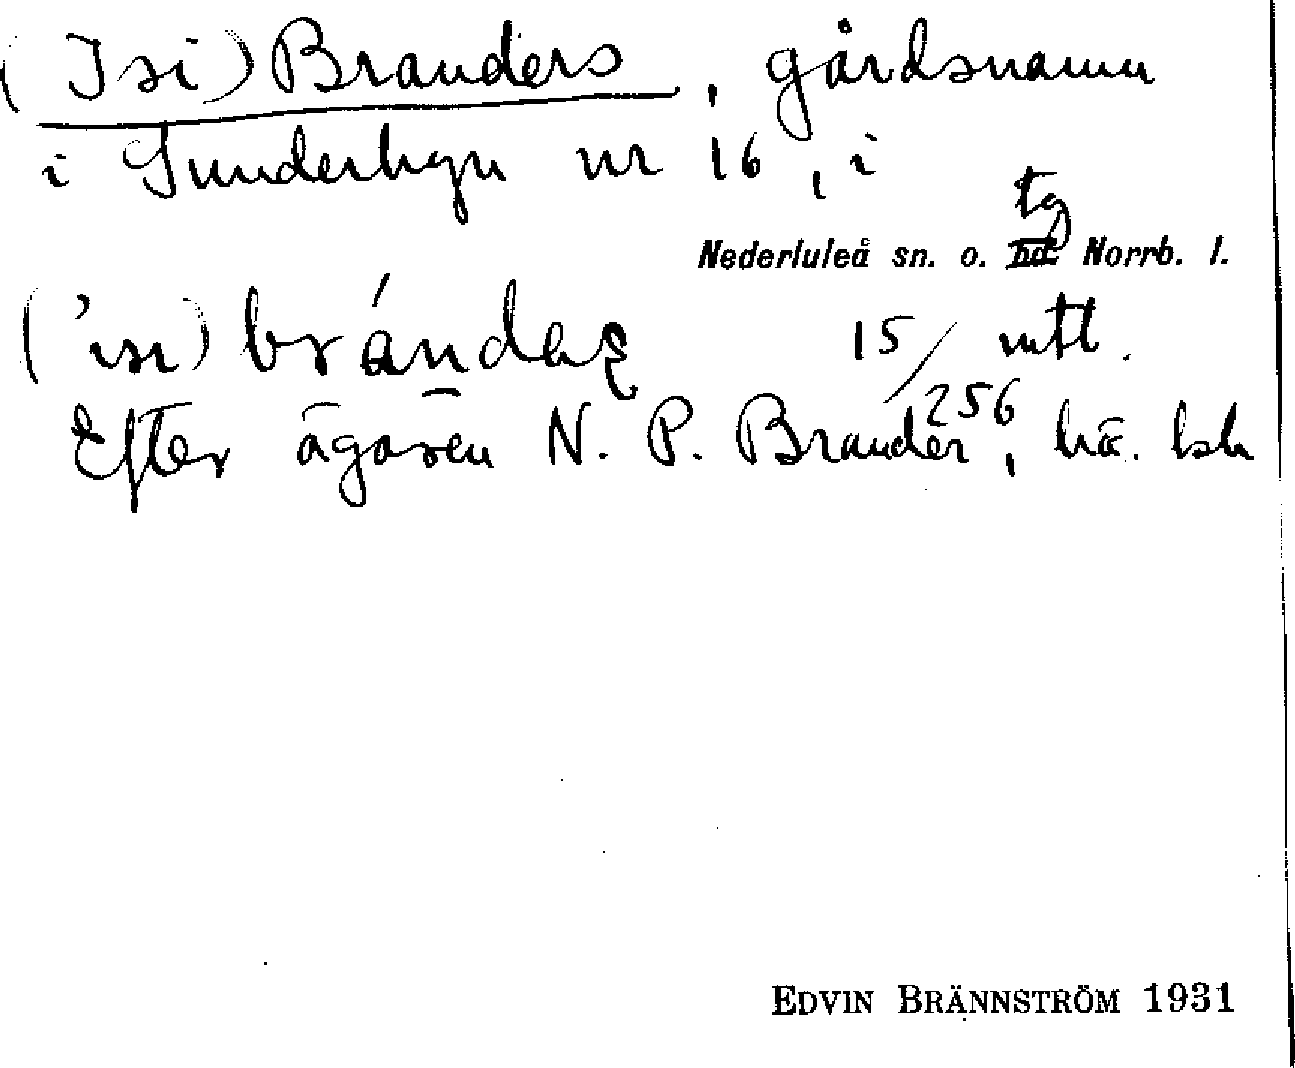 (Isi) Branders, gårdsnamn
i Sunderbyn nr 16, i
tg
Nederluleå sn. o. hd. Norrb. l.
('isi) brándeʂ 15/256 mtl.
Efter ägaren N. P. Brander, hä.
EDVIN BRÄNNSTRÖM 1931